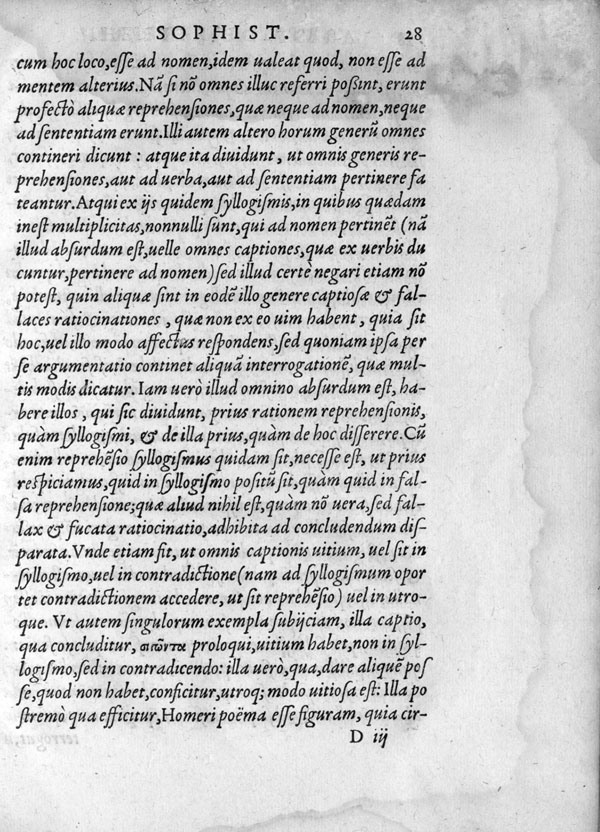 SOPHIST. 28
cum hoc loco,esse ad nomen,idem ualeat quod, non esse ad
mentem alterius.Nã si nõ omnes illuc referri poßint, erunt
profectò aliquæ reprehensiones,quæ neque ad nomen,neque
ad sententiam erunt.Illi autem altero horum generũ omnes
contineri dicunt : atque ita diuidunt, ut omnis generis re-
prehensiones,aut ad uerba,aut ad sententiam pertinere fa
teantur.Atqui ex ijs quidem syllogismis,in quibus quædam
inest multiplicitas,nonnulli sunt,qui ad nomen pertinẽt (nã
illud absurdum est,uelle omnes captiones,quæ ex uerbis du
cuntur,pertinere ad nomen)sed illud certè negari etiam nõ
potest, quin aliquæ sint in eodẽ illo genere captiosæ & fal-
laces ratiocinationes , quæ non ex eo uim habent, quia sit
hoc,uel illo modo affectus respondens,sed quoniam ipsa per
se argumentatio continet aliquã interrogationẽ, quæ mul-
tis modis dicatur. Iam uerò illud omnino absurdum est, ha-
bere illos , qui sic diuidunt, prius rationem reprehensionis,
quàm syllogismi, & de illa prius,quàm de hoc disserere.Cũ
enim reprehẽsio syllogismus quidam sit,necesse est, ut prius
respiciamus,quid in syllogismo positũ sit,quàm quid in fal-
sa reprehensione;quæ aliud nihil est,quàm nõ uera,sed fal-
lax & fucata ratiocinatio,adhibita ad concludendum dis-
parata.Vnde etiam fit, ut omnis captionis uitium, uel sit in
syllogismo,uel in contradictione(nam ad syllogismum opor
tet contradictionem accedere, ut sit reprehẽsio) uel in utro-
que. Vt autem singulorum exempla subijciam, illa captio,
qua concluditur, σιγῶντα proloqui,uitium habet,non in syl-
logismo,sed in contradicendo: illa uerò,qua,dare aliquẽ pos
se,quod non habet,conficitur,utroq; modo uitiosa est: Illa po
stremò qua efficitur,Homeri poëma esse figuram, quia cir-
D iij